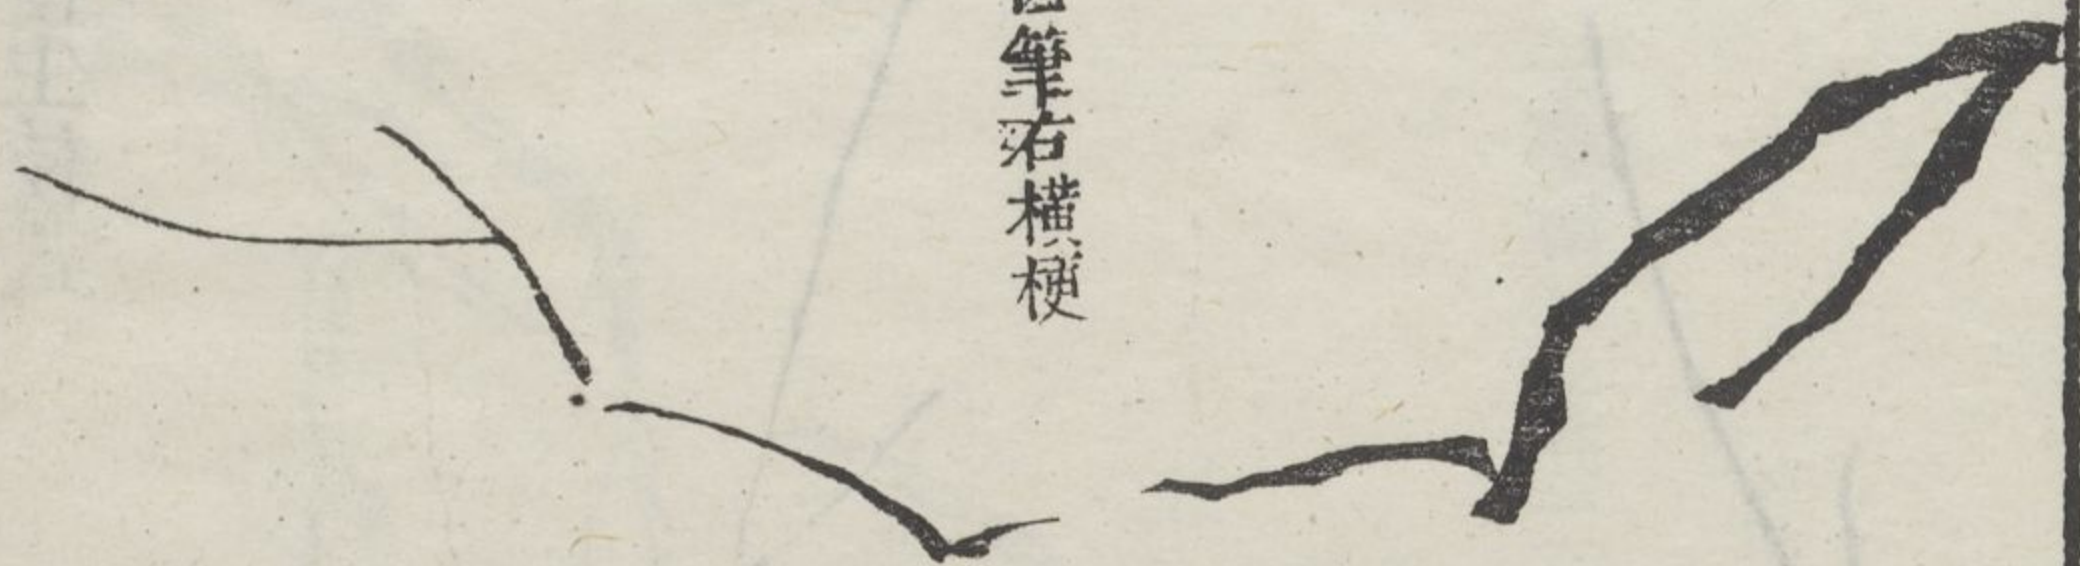 筆右橫梗